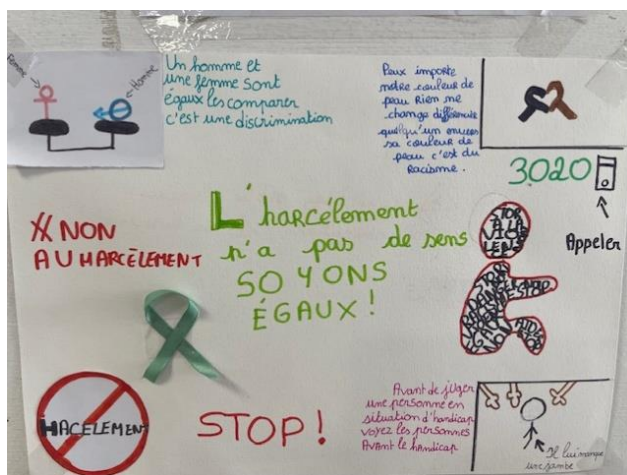 Femme
Homme
Un homme et
une femme sont
égaux les comparer
c'est une discrimination
Peux importe
nôtre couleur de
peau Rien ne
change différencié
quelqu'un envers
sa couleur de
peau c'est du
Racisme.
3020
Appeler
NON
AU HARCÈLEMENT
L'harcélement
n'a pas de sens
SOYONS
ÉGAUX !
STOP
A LA
VIO
LENCE
HACELEMENT
STOP !
Avant de juger
une personne en
situation d'handicap
voyez les personnes
Avant le handicap
Il lui manque
une jambe